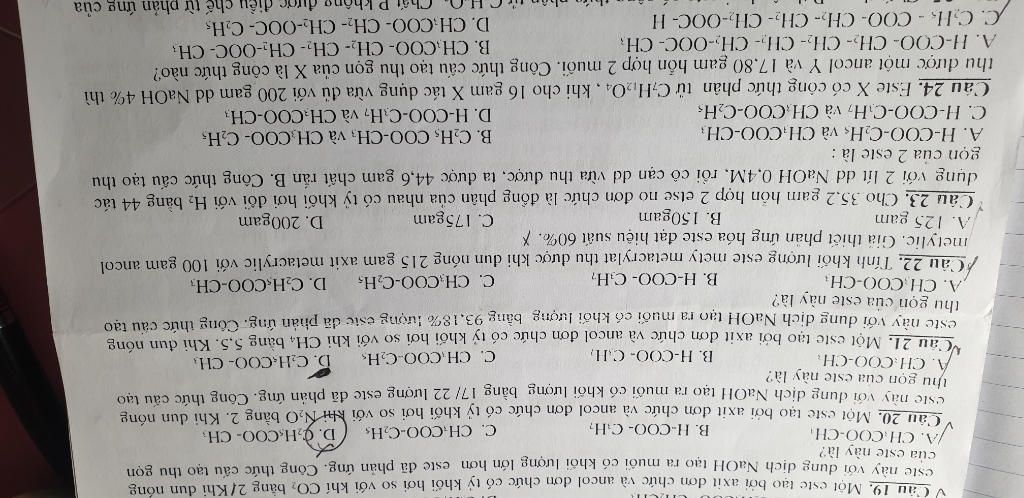 Câu 19. Một este tạo bởi axit đơn chức và ancol đơn chức có tỷ khối hơi so với khí CO₂ bằng 2/ Khi đun nóng
este này với dung dịch NaOH tạo ra muối có khối lượng lớn hơn este đã phản ứng. Công thức cấu tạo thu gọn
của este này là?
A. CH₃COO-CH₃ B. H-COO- C₃H₇ C. CH₃COO-C₂H₅ D. C₂H₅COO- CH₃
Câu 20. Một este tạo bởi axit đơn chức và ancol đơn chức có tỷ khối hơi so với khí N₂O bằng 2. Khi đun nóng
este này với dung dịch NaOH tạo ra muối có khối lượng bằng 17/ 22 lượng este đã phản ứng. Công thức cấu tạo
thu gọn của este này là?
A. CH₃COO-CH₃ B. H-COO- C₃H₇ C. CH₃COO-C₂H₅ D. C₂H₅COO- CH₃
Câu 21. Một este tạo bởi axit đơn chức và ancol đơn chức có tỷ khối hơi so với khí CH₄ bằng 5,5. Khi đun nóng
este này với dung dịch NaOH tạo ra muối có khối lượng bằng 93,18% lượng este đã phản ứng. Công thức cấu tạo
thu gọn của este này là?
A. CH₃COO-CH₃ B. H-COO- C₃H₇ C. CH₃COO-C₂H₅ D. C₂H₅COO-CH₃
Câu 22. Tính khối lượng este mety metacrylat thu được khi đun nóng 215 gam axit metacrylic với 100 gam ancol
metylic. Giả thiết phản ứng hóa este đạt hiệu suất 60%.
A. 125 gam B. 150gam C. 175gam D. 200gam
Câu 23. Cho 35,2 gam hỗn hợp 2 etse no đơn chức là đồng phân của nhau có tỷ khối hơi đối với H₂ bằng 44 tác
dụng với 2 lít dd NaOH 0,4M, rồi cô cạn dd vừa thu được, ta được 44,6 gam chất rắn B. Công thức cấu tạo thu
gọn của 2 este là :
A. H-COO-C₂H₅ và CH₃COO-CH₃ B. C₂H₅ COO-CH₃ và CH₃COO- C₂H₅
C. H-COO-C₃H₇ và CH₃COO-C₂H₅ D. H-COO-C₃H₇ và CH₃COO-CH₃
Câu 24. Este X có công thức phân tử C₇H₁₂O₄ , khi cho 16 gam X tác dụng vừa đủ với 200 gam dd NaOH 4% thì
thu được một ancol Y và 17,80 gam hỗn hợp 2 muối. Công thức cấu tạo thu gọn của X là công thức nào?
A. H-COO- CH₂- CH₂- CH₂- CH₂-OOC- CH₃ B. CH₃COO- CH₂- CH₂- CH₂-OOC- CH₃
C. C₂H₅ - COO- CH₂- CH₂- CH₂-OOC- H D. CH₃COO- CH₂- CH₂-OOC- C₂H₅